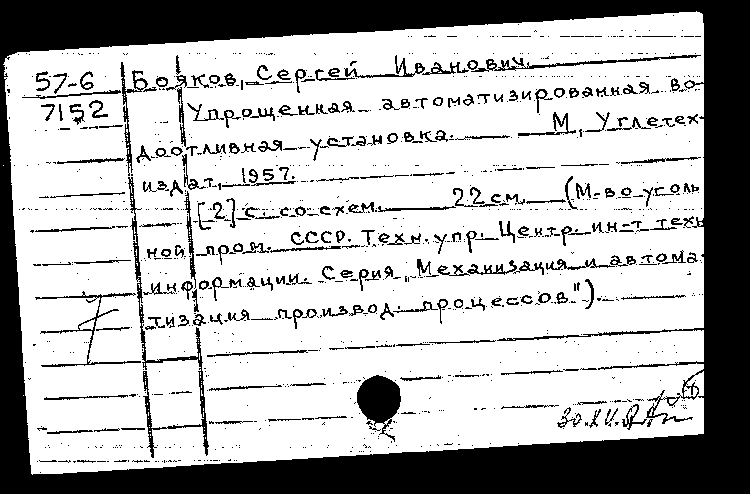 57-6 Бояков, Сергей Иванович.
7152 Упрощенная автоматизированная во-
доотливная установка. М, Углетех-
издат, 1957.
[2] с. со схем. 22 см. (М-во уголь
ной пром. СССР. Техн. упр. Центр. ин-т техн
информации. Серия „Механизация и автома-
тизация производ. процессов").
7
30.XII.